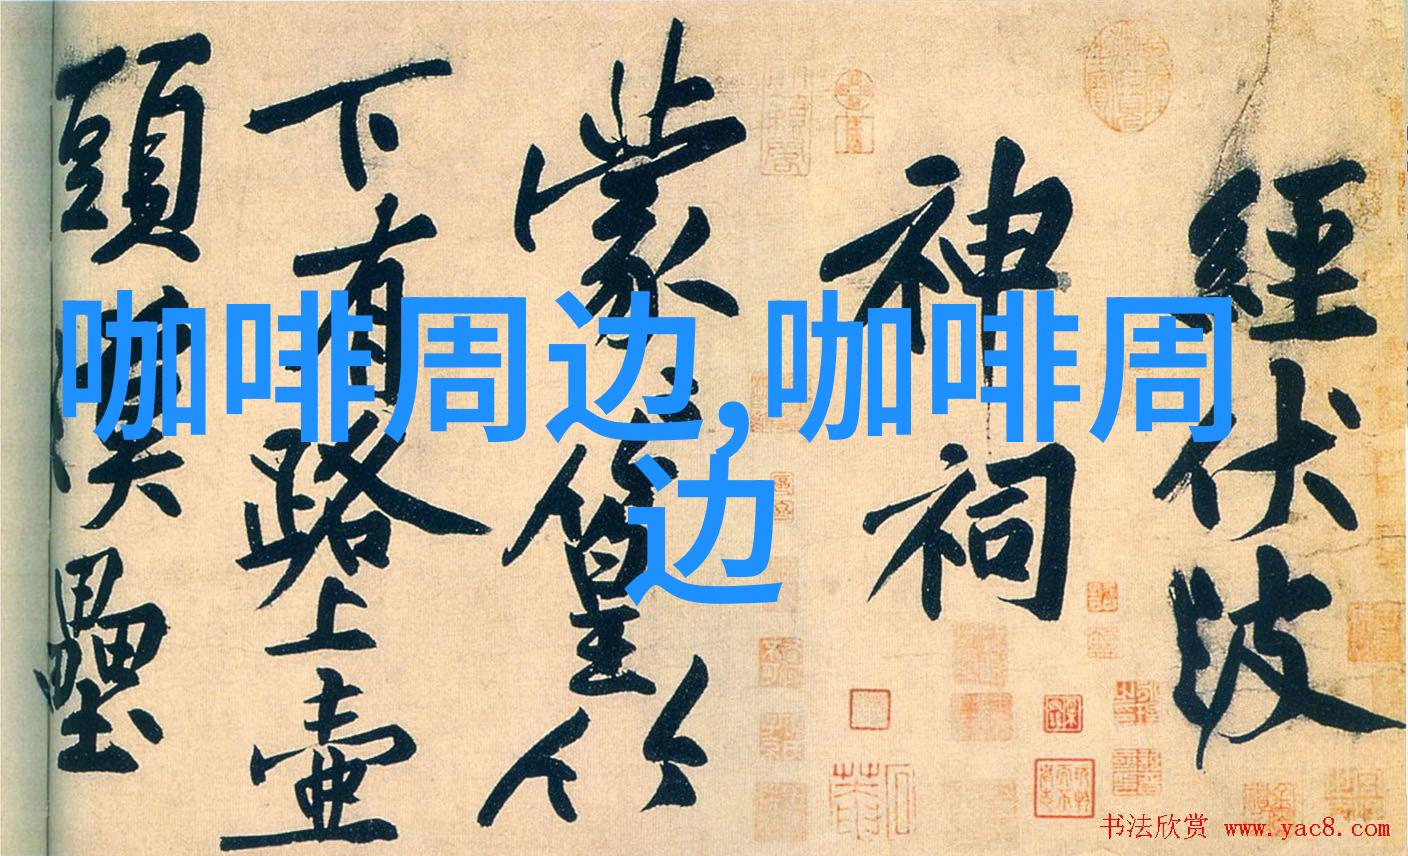 經伏波
神祠
蒙蒙篁竹
下有路上壺
頭漢壘
咖啡周边,咖啡周
边
书法欣赏 www.yac8.com